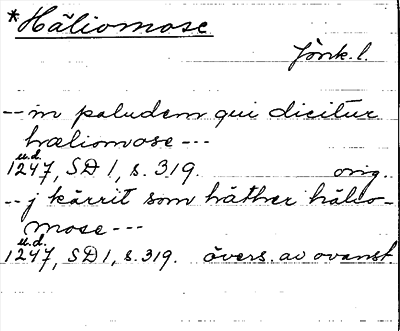 *Häliomose
Jönk.l.
-- in paludem qui dicitur
hæliomose ---
u.d.
1247, SD 1, s. 319. orig.
-- j kärrit som häther hälio-
mose ---
u.d.
1247, SD 1, s. 319. övers. av ovanst